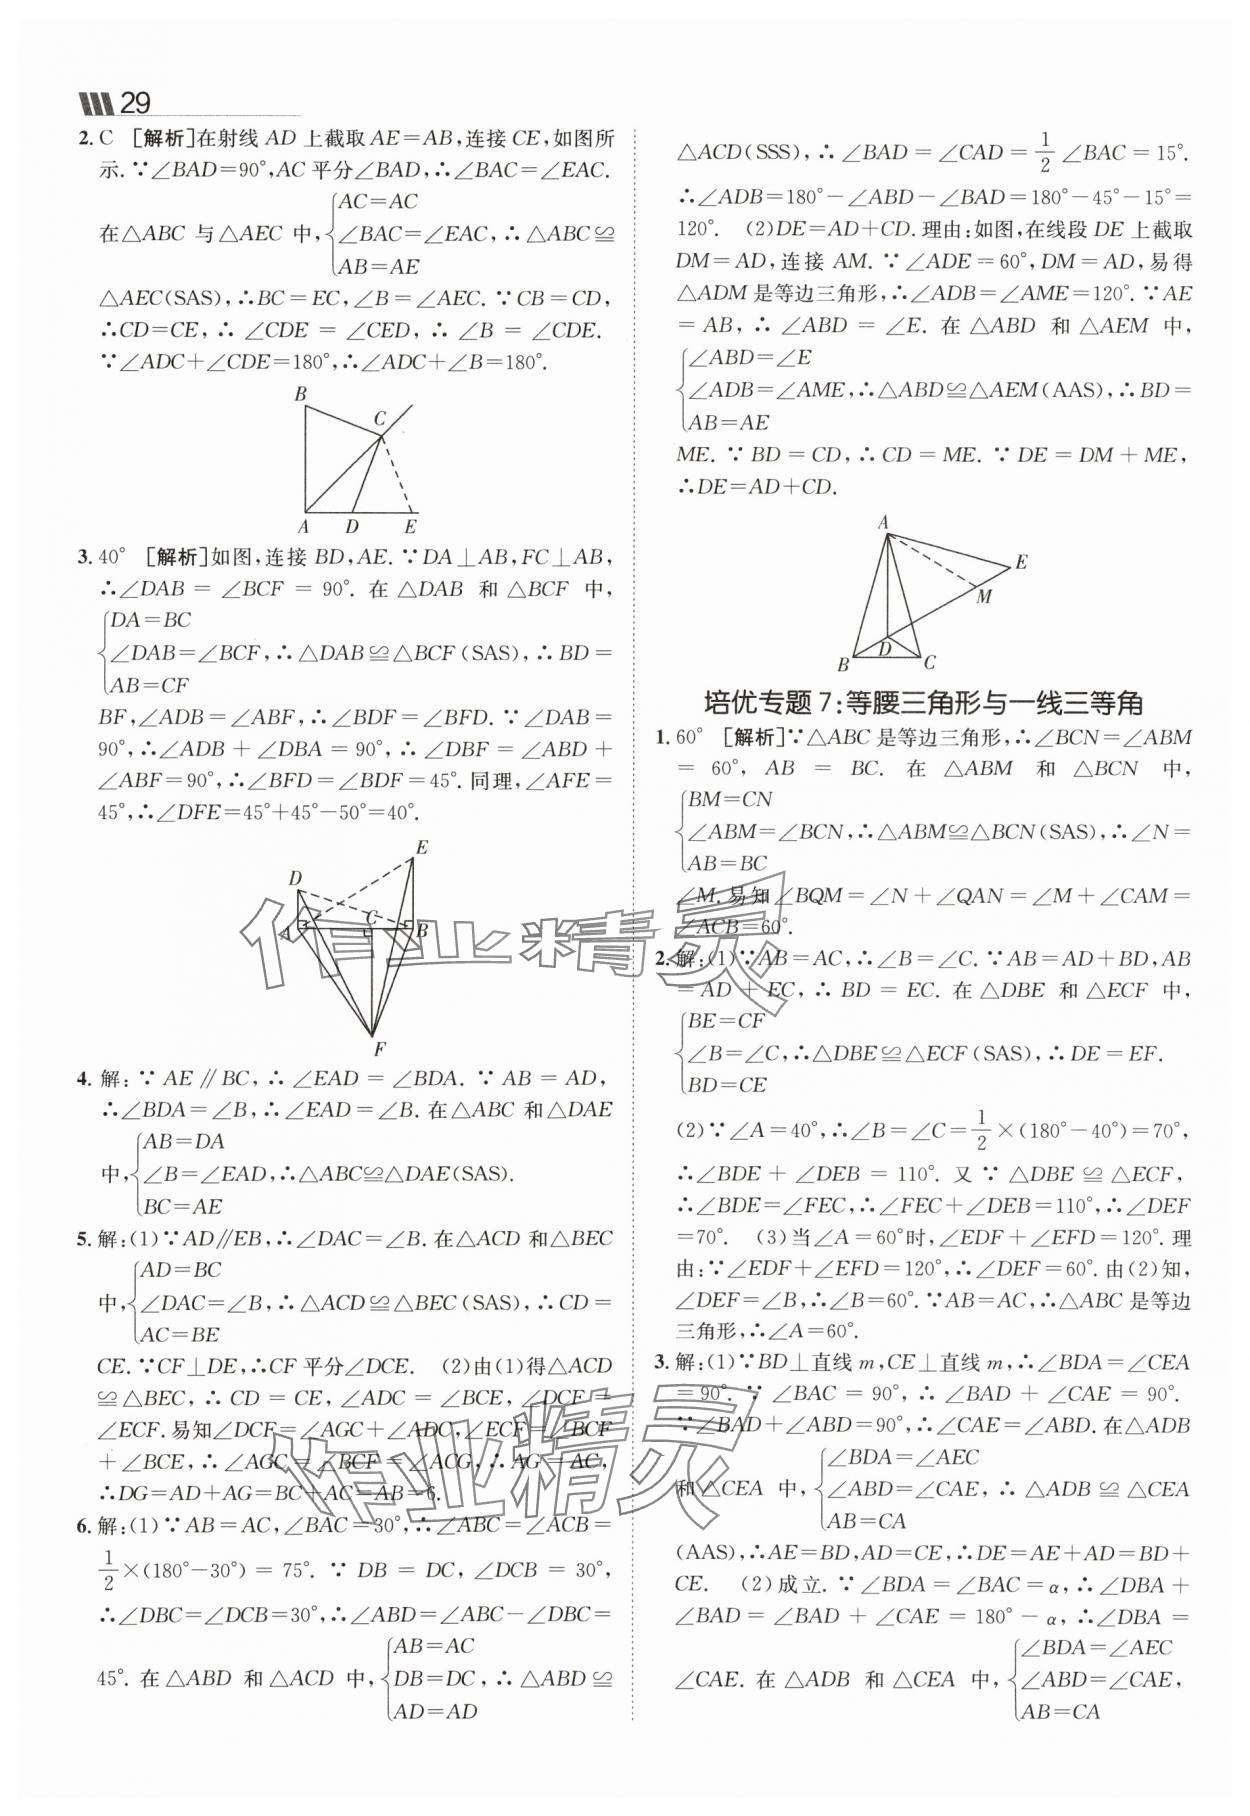 29
2. C [解析]在射线 AD 上截取 AE=AB,连接 CE,如图所
示.∵∠BAD=90°,AC 平分∠BAD,∴∠BAC=∠EAC.
AC=AC
在△ABC 与△AEC 中,∠BAC=∠EAC,∴△ABC≌
AB=AE
△AEC(SAS),∴BC=EC,∠B=∠AEC.∵CB=CD,
∴CD=CE,∴∠CDE=∠CED,∴∠B=∠CDE.
∵∠ADC+∠CDE=180°,∴∠ADC+∠B=180°.
B
C
A D E
3. 40° [解析]如图,连接 BD,AE.∵DA⊥AB,FC⊥AB,
∴∠DAB=∠BCF=90°.在△DAB 和△BCF 中,
DA=BC
∠DAB=∠BCF,∴△DAB≌△BCF(SAS),∴BD=
AB=CF
BF,∠ADB=∠ABF,∴∠BDF=∠BFD.∵∠DAB=
90°,∴∠ADB+∠DBA=90°,∴∠DBF=∠ABD+
∠ABF=90°,∴∠BFD=∠BDF=45°.同理,∠AFE=
45°,∴∠DFE=45°+45°-50°=40°.
E
D
A C B
F
4. 解:∵AE∥BC,∴∠EAD=∠BDA.∵AB=AD,
∴∠BDA=∠B,∴∠EAD=∠B.在△ABC 和△DAE
AB=DA
中,∠B=∠EAD,∴△ABC≌△DAE(SAS).
BC=AE
5. 解:(1)∵AD∥EB,∴∠DAC=∠B.在△ACD 和△BEC
AD=BC
中,∠DAC=∠B,∴△ACD≌△BEC(SAS),∴CD=
AC=BE
CE.∵CF⊥DE,∴CF 平分∠DCE. (2)由(1)得△ACD
≌△BEC,∴CD=CE,∠ADC=∠BCE,∠DCF=
∠ECF.易知∠DCF=∠AGC+∠ADC,∠ECF=∠BCF
+∠BCE,∴∠AGC=∠BCF=∠ACG,∴AG=AC,
∴DG=AD+AG=BC+AC=AB=6.
6. 解:(1)∵AB=AC,∠BAC=30°,∴∠ABC=∠ACB=
1/2×(180°-30°)=75°.∵DB=DC,∠DCB=30°,
∴∠DBC=∠DCB=30°,∴∠ABD=∠ABC-∠DBC=
AB=AC
45°.在△ABD 和△ACD 中,DB=DC,∴△ABD≌
AD=AD
△ACD(SSS),∴∠BAD=∠CAD=1/2∠BAC=15°.
∴∠ADB=180°-∠ABD-∠BAD=180°-45°-15°=
120°. (2)DE=AD+CD.理由:如图,在线段 DE 上截取
DM=AD,连接 AM.∵∠ADE=60°,DM=AD,易得
△ADM 是等边三角形,∴∠ADB=∠AME=120°.∵AE
=AB,∴∠ABD=∠E.在△ABD 和△AEM 中,
∠ABD=∠E
∠ADB=∠AME,∴△ABD≌△AEM(AAS),∴BD=
AB=AE
ME.∵BD=CD,∴CD=ME.∵DE=DM+ME,
∴DE=AD+CD.
A
E
M
D
B C
培优专题 7:等腰三角形与一线三等角
1. 60° [解析]∵△ABC 是等边三角形,∴∠BCN=∠ABM
=60°,AB=BC.在△ABM 和△BCN 中,
BM=CN
∠ABM=∠BCN,∴△ABM≌△BCN(SAS),∴∠N=
AB=BC
∠M.易知∠BQM=∠N+∠QAN=∠M+∠CAM=
∠ACB=60°.
2. 解:(1)∵AB=AC,∴∠B=∠C.∵AB=AD+BD,AB
=AD+EC,∴BD=EC.在△DBE 和△ECF 中,
BE=CF
∠B=∠C,∴△DBE≌△ECF(SAS),∴DE=EF.
BD=CE
(2)∵∠A=40°,∴∠B=∠C=1/2×(180°-40°)=70°,
∴∠BDE+∠DEB=110°.又∵△DBE≌△ECF,
∴∠BDE=∠FEC,∴∠FEC+∠DEB=110°,∴∠DEF
=70°. (3)当∠A=60°时,∠EDF+∠EFD=120°.理
由:∵∠EDF+∠EFD=120°,∴∠DEF=60°.由(2)知,
∠DEF=∠B,∴∠B=60°.∵AB=AC,∴△ABC 是等边
三角形,∴∠A=60°.
3. 解:(1)∵BD⊥直线 m,CE⊥直线 m,∴∠BDA=∠CEA
=90°.∵∠BAC=90°,∴∠BAD+∠CAE=90°.
∵∠BAD+∠ABD=90°,∴∠CAE=∠ABD.在△ADB
∠BDA=∠AEC
和△CEA 中,∠ABD=∠CAE,∴△ADB≌△CEA
AB=CA
(AAS),∴AE=BD,AD=CE,∴DE=AE+AD=BD+
CE. (2)成立.∵∠BDA=∠BAC=α,∴∠DBA+
∠BAD=∠BAD+∠CAE=180°-α,∴∠DBA=
∠BDA=∠AEC
∠CAE.在△ADB 和△CEA 中,∠ABD=∠CAE,
AB=CA
作业精灵
作业精灵